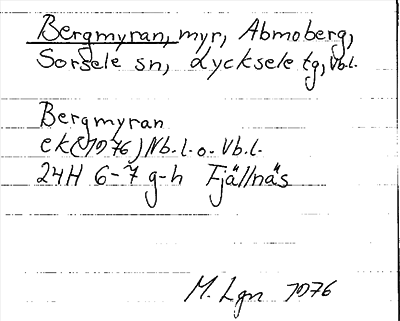 Bergmyran, myr, Abmoberg,
Sorsele sn, Lycksele tg, Vb.l.
Bergmyran
ek(1976) Nb.l. o. Vb.l.
24H 6-7 g-h Fjällnäs
M. Lgn 1976